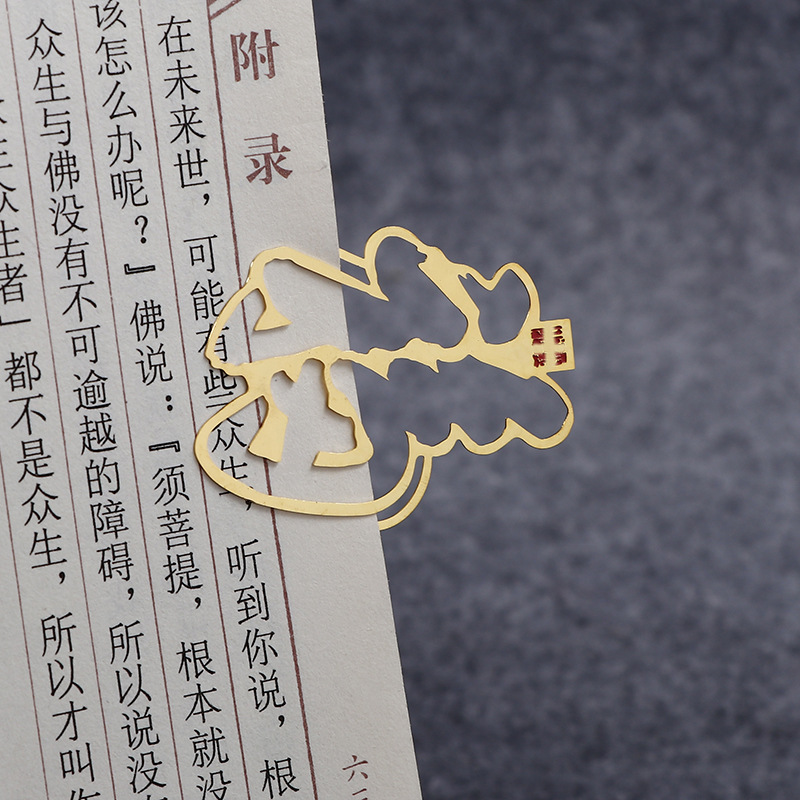 附录
在未来世，可能有些众生，听到你说，根
该怎么办呢？』佛说：『须菩提，根本就没
众生与佛没有不可逾越的障碍，所以说没有
众生者」都不是众生，所以才叫
六